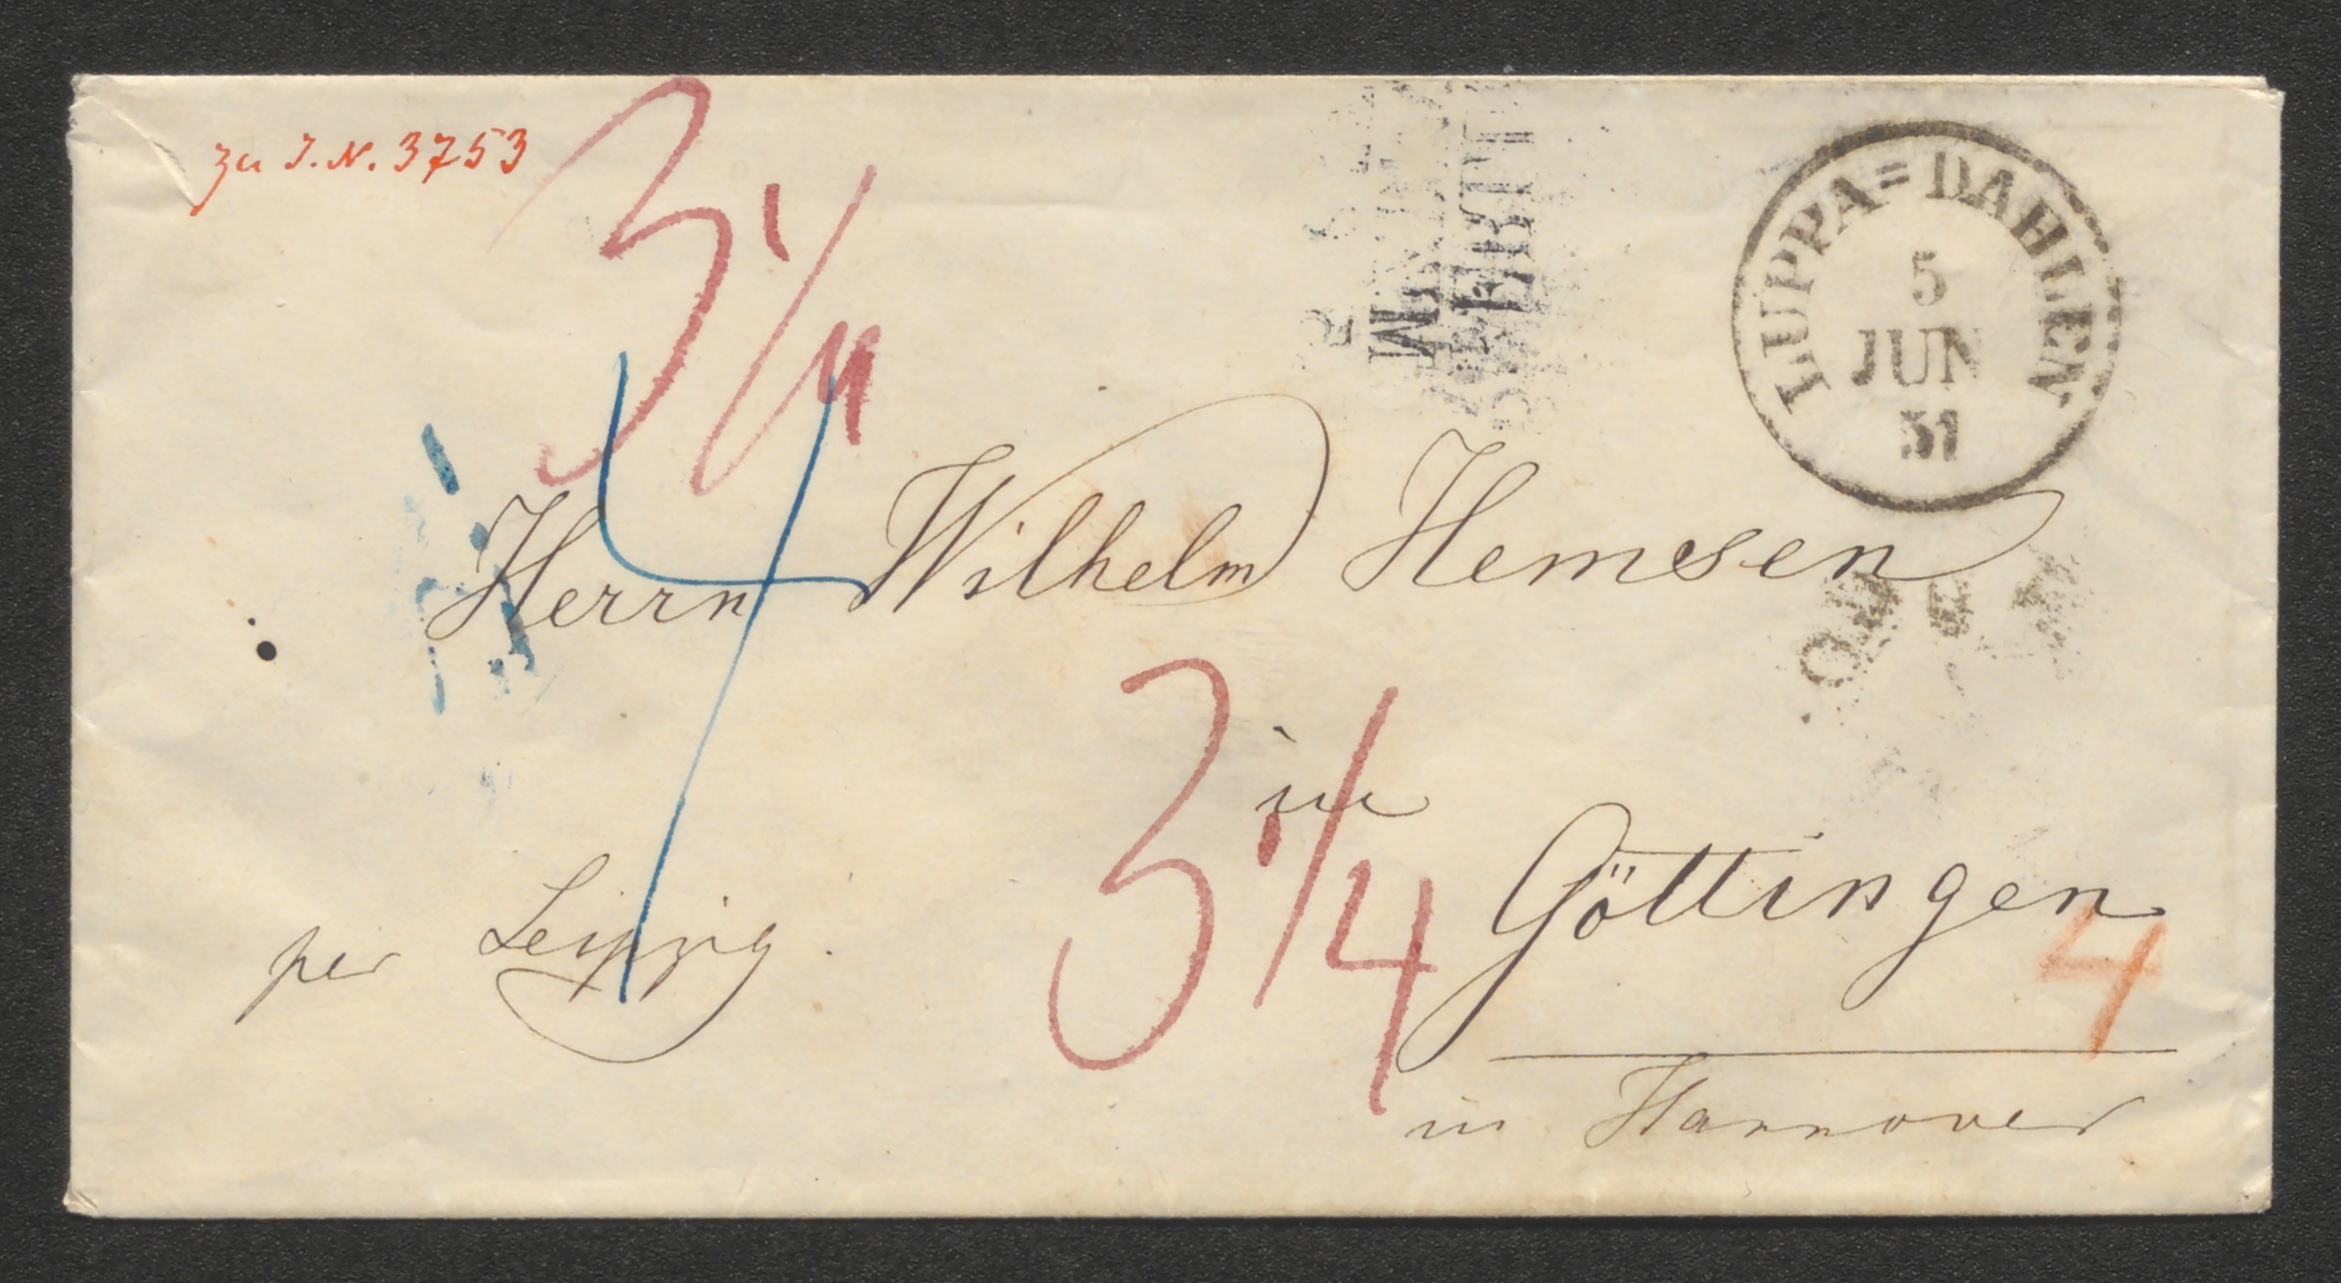 zu I.N. 3753
3 1/4
LUPPA=DAHLEN
5
JUN
51
4
Herrn Wilhelm Hemsen
in
3 1/4
Göttingen
4
per Leipzig.
in Hannover